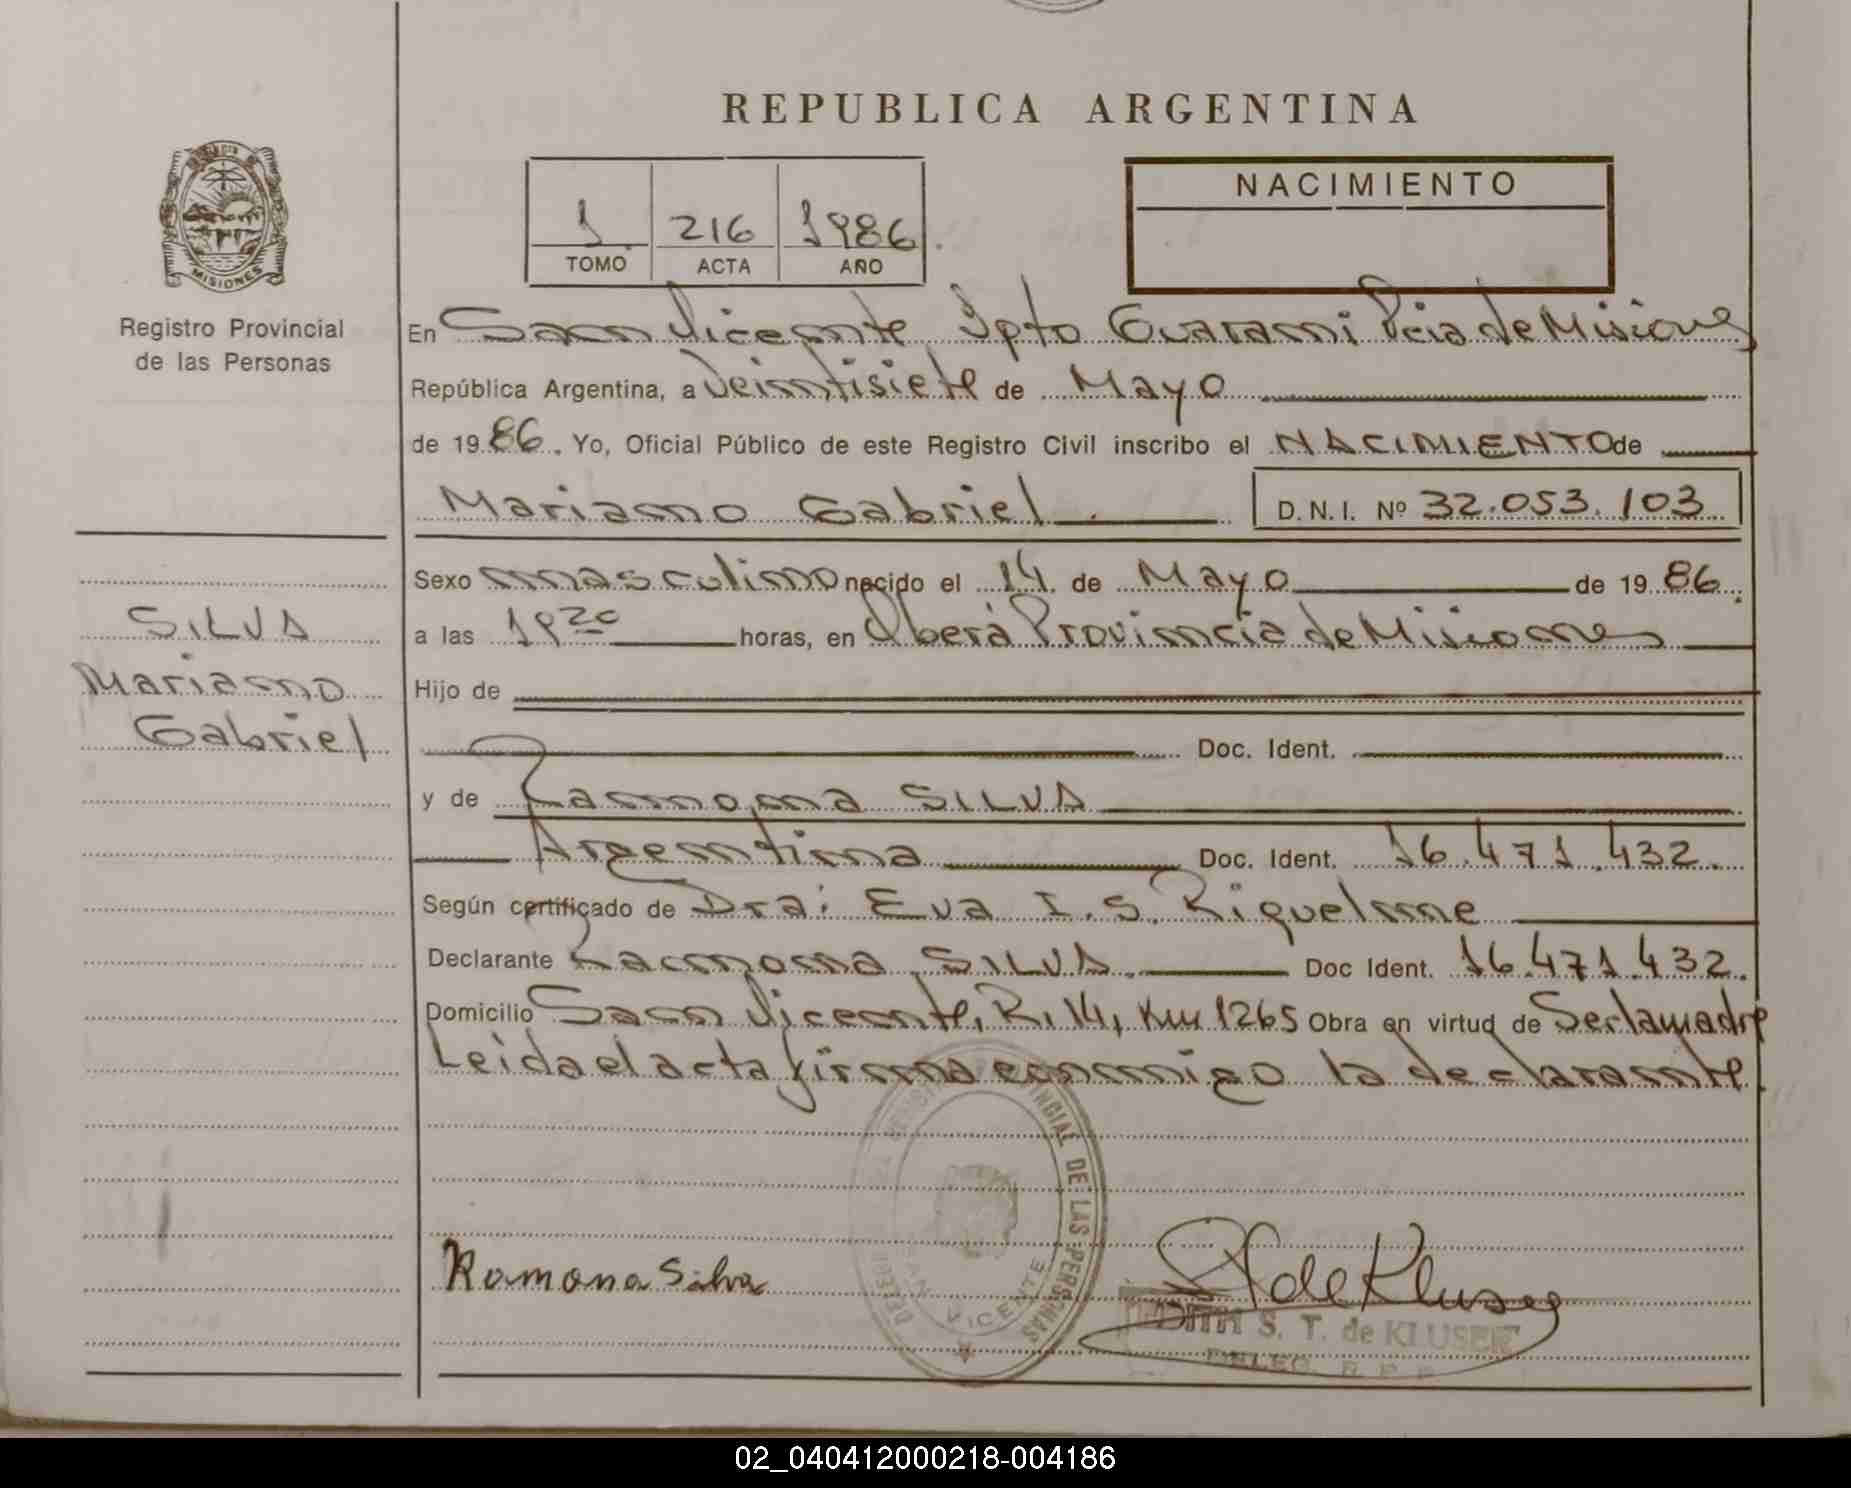 REPUBLICA ARGENTINA
1 216 1986
TOMO ACTA AÑO
NACIMIENTO
MISIONES
Registro Provincial
de las Personas
SILVA
Mariano
Gabriel
En San Vicente Dpto Guarani Pcia de Misiones
República Argentina, a veintisiete de Mayo
de 1986. Yo, Oficial Público de este Registro Civil inscribo el NACIMIENTO de
Mariano Gabriel D.N.I. Nº 32.053.103
Sexo masculino nacido el 14 de Mayo de 1986.
a las horas, en Oberá Provincia de Misiones
Hijo de
Doc. Ident.
y de Ramona SILVA
Argentina Doc. Ident. 16.471.432.
Según certificado de Dra: Eva I. S. Riquelme
Declarante Ramona SILVA. Doc Ident. 16.471.432.
Domicilio San Vicente, R. 14, Km 1265 Obra en virtud de Ser la madre
Leida el acta firma conmigo la declarante.
DE LAS PERSONAS
VICENTE
Ramona Silva
de Kluser
S. T. de KLUSER
DELEG. R. P. P.
02_040412000218-004186